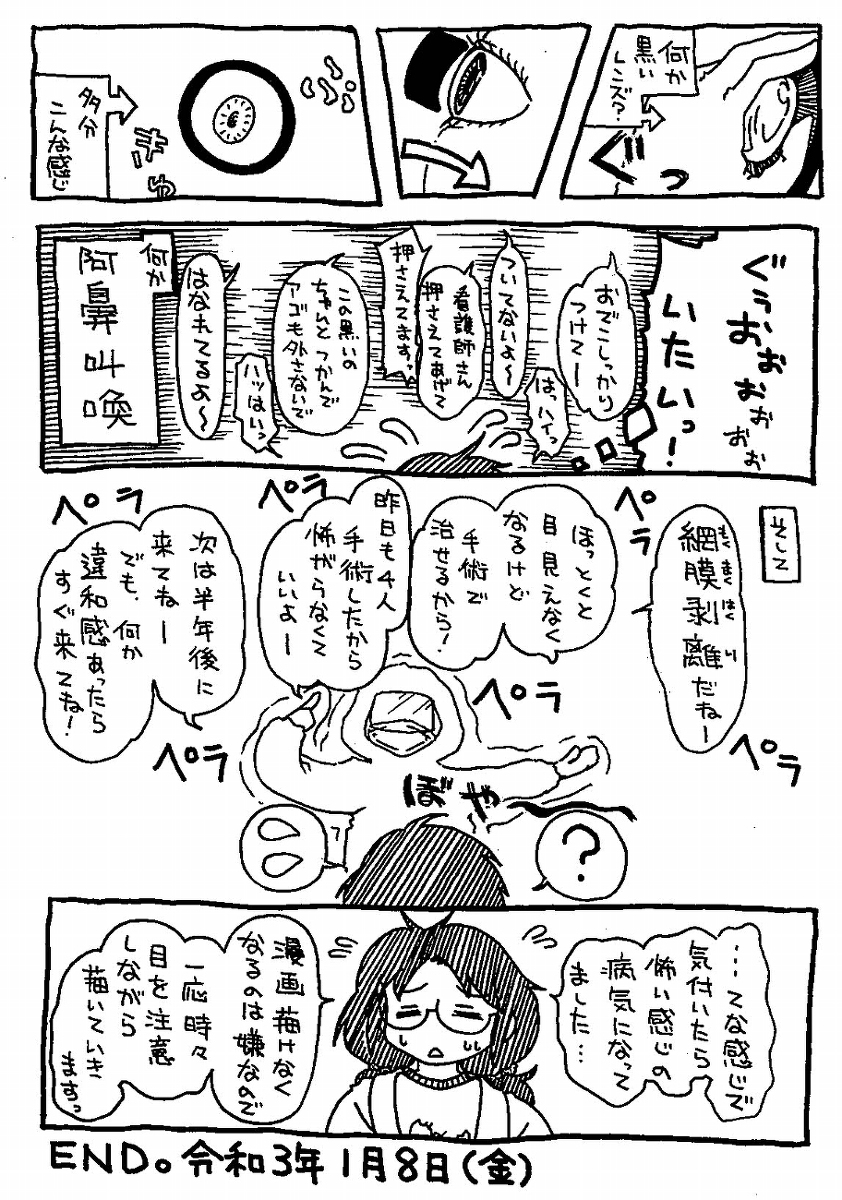 何か
黒い
レンズ？
ぐっ
多分
こんな感じ
ぎゅ
ぐぅ、おぉおぉぉぉ
いたいっ！
おでこしっかり
つけてー
はっ、ハイっ
ついてないよ〜
看護師さん
押さえてあげて
押さえてますっ
この黒いの
ちゃんとつかんで
アゴも外さないで
ハッはいっ
はなれてるよ〜
何か
阿鼻叫喚
そして
網膜剥離だねー
もうまくはくり
ペラ
ペラ
ほっとくと
目見えなく
なるけど
手術で
治せるから！
ペラ
ペラ
昨日も4人
手術したから
怖がらなくて
いいよー
次は半年後に
来てねー
でも、何か
違和感あったら
すぐ来てね！
ペラ
ペラ
ぼや〜
？
…てな感じで
気付いたら
怖い感じの
病気になって
ました…
漫画描けなく
なるのは嫌なので
一応時々
目を注意
しながら
描いていき
ますっ
END。令和3年1月8日(金)